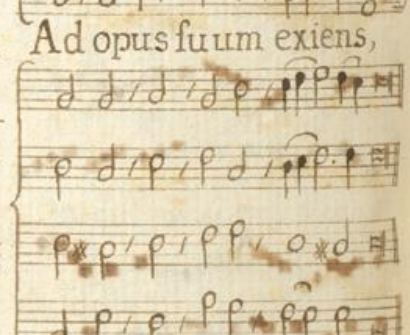 Ad opus suum exiens,